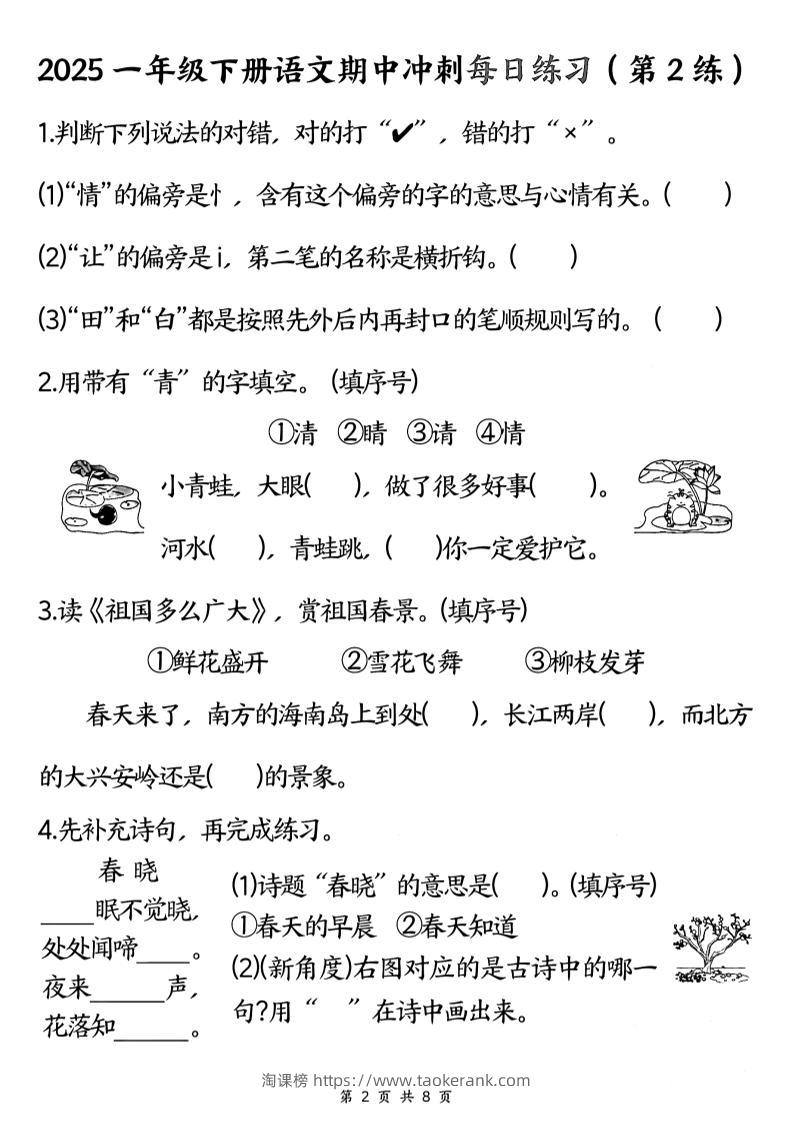 2025 一年级下册语文期中冲刺每日练习（第 2 练）
1.判断下列说法的对错，对的打“✔”，错的打“×”。
(1)“情”的偏旁是忄，含有这个偏旁的字的意思与心情有关。(  )
(2)“让”的偏旁是i，第二笔的名称是横折钩。(  )
(3)“田”和“白”都是按照先外后内再封口的笔顺规则写的。(  )
2.用带有“青”的字填空。(填序号)
①清 ②晴 ③请 ④情
小青蛙，大眼(  )，做了很多好事(  )。
河水(  )，青蛙跳，(  )你一定爱护它。
3.读《祖国多么广大》，赏祖国春景。(填序号)
①鲜花盛开 ②雪花飞舞 ③柳枝发芽
春天来了，南方的海南岛上到处(  )，长江两岸(  )，而北方
的大兴安岭还是(  )的景象。
4.先补充诗句，再完成练习。
春 晓
____眠不觉晓，
处处闻啼____。
夜来______声，
花落知______。
(1)诗题“春晓”的意思是(  )。(填序号)
①春天的早晨 ②春天知道
(2)(新角度)右图对应的是古诗中的哪一
句?用“  ”在诗中画出来。
淘课榜 https://www.taokerank.com
第 2 页 共 8 页